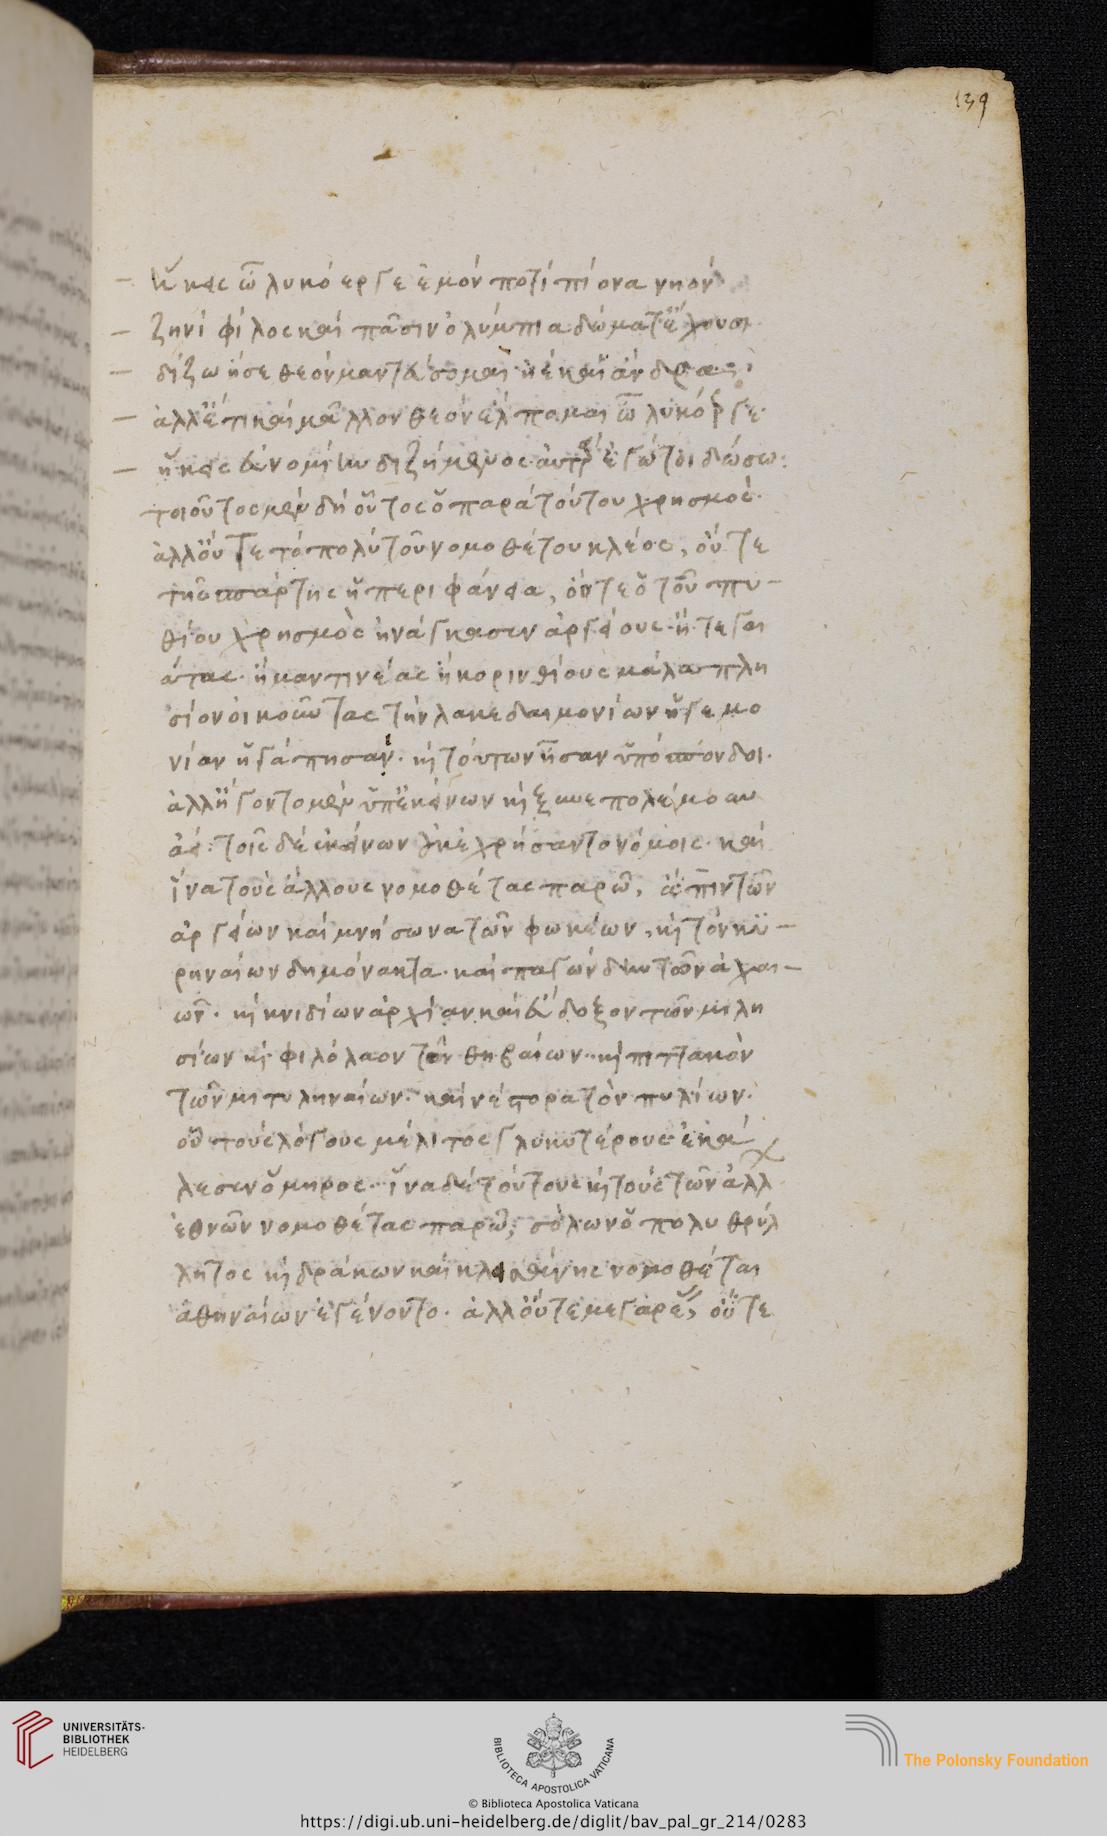 139
ἥκεις ὦ λυκόεργε ἐμὸν ποτὶ πίονα νηὸν
ζηνὶ φίλος καὶ πᾶσιν ὀλύμπια δώματ' ἔχουσι
δίζω ἤ σε θεὸν μαντεύσομαι ἠὲ καὶ ἄνδρα
ἀλλ' ἔτι καὶ μᾶλλον θεὸν ἔλπομαι ὦ λυκόεργε
ἥκεις εὐνομίην διζήμενος αὐτὰρ ἐγώ τοι δώσω:
τοιοῦτος μὲν δὴ οὗτος ὁ παρὰ τούτου χρησμός.
ἀλλ' οὔτε τὸ πολὺ τοῦ νομοθέτου κλέος, οὔτε
τῆς σπάρτης ἡ περιφάνεια, οὔτε ὁ τοῦ πυ-
θίου χρησμὸς ἠνάγκασεν ἀργείους ἢ τεγε
άτας ἢ μαντινέας ἢ κορινθίους μάλα πλη
σίον οἰκοῦντας τὴν λακεδαιμονίων ἡγεμο
νίαν ἠγάπησαν. καὶ τούτων ἦσαν ὑπόσπονδοι.
ἀλλ' ἤγοντο μὲν ὑπ' ἐκείνων καὶ ξυνεπολέμουν
ἀεί. τοῖς δὲ ἐκείνων οὐκ ἐχρήσαντο νόμοις. καὶ
ἵνα τοὺς ἄλλους νομοθέτας παρῶ,
ἀργείων καὶ μνήσωνα τῶν φωκέων, καὶ τὸν κυ-
ρηναίων δημώνακτα. καὶ παγώνδην τῶν ἀχαι-
ῶν. καὶ κνιδίων ἀρχίαν καὶ εὔδοξον τῶν μιλη
σίων καὶ φιλόλαον τῶν θηβαίων. καὶ πιττακὸν
τῶν μιτυληναίων. καὶ νέστορα τὸν πυλίων.
οὗ τοὺς λόγους μέλιτος γλυκυτέρους ἐκά
λεσεν ὅμηρος. ἵνα δὲ τούτους καὶ τοὺς τῶν ἄλλ
ἐθνῶν νομοθέτας παρῶ, σόλων ὁ πολυθρύλ
λητος καὶ δράκων καὶ κλεισθένης νομοθέται
ἀθηναίων ἐγένοντο. ἀλλ' οὔτε μεγαρεῖς, οὔτε
UNIVERSITÄTS-
BIBLIOTHEK
HEIDELBERG
BIBLIOTECA APOSTOLICA VATICANA
The Polonsky Foundation
© Biblioteca Apostolica Vaticana
https://digi.ub.uni-heidelberg.de/diglit/bav_pal_gr_214/0283